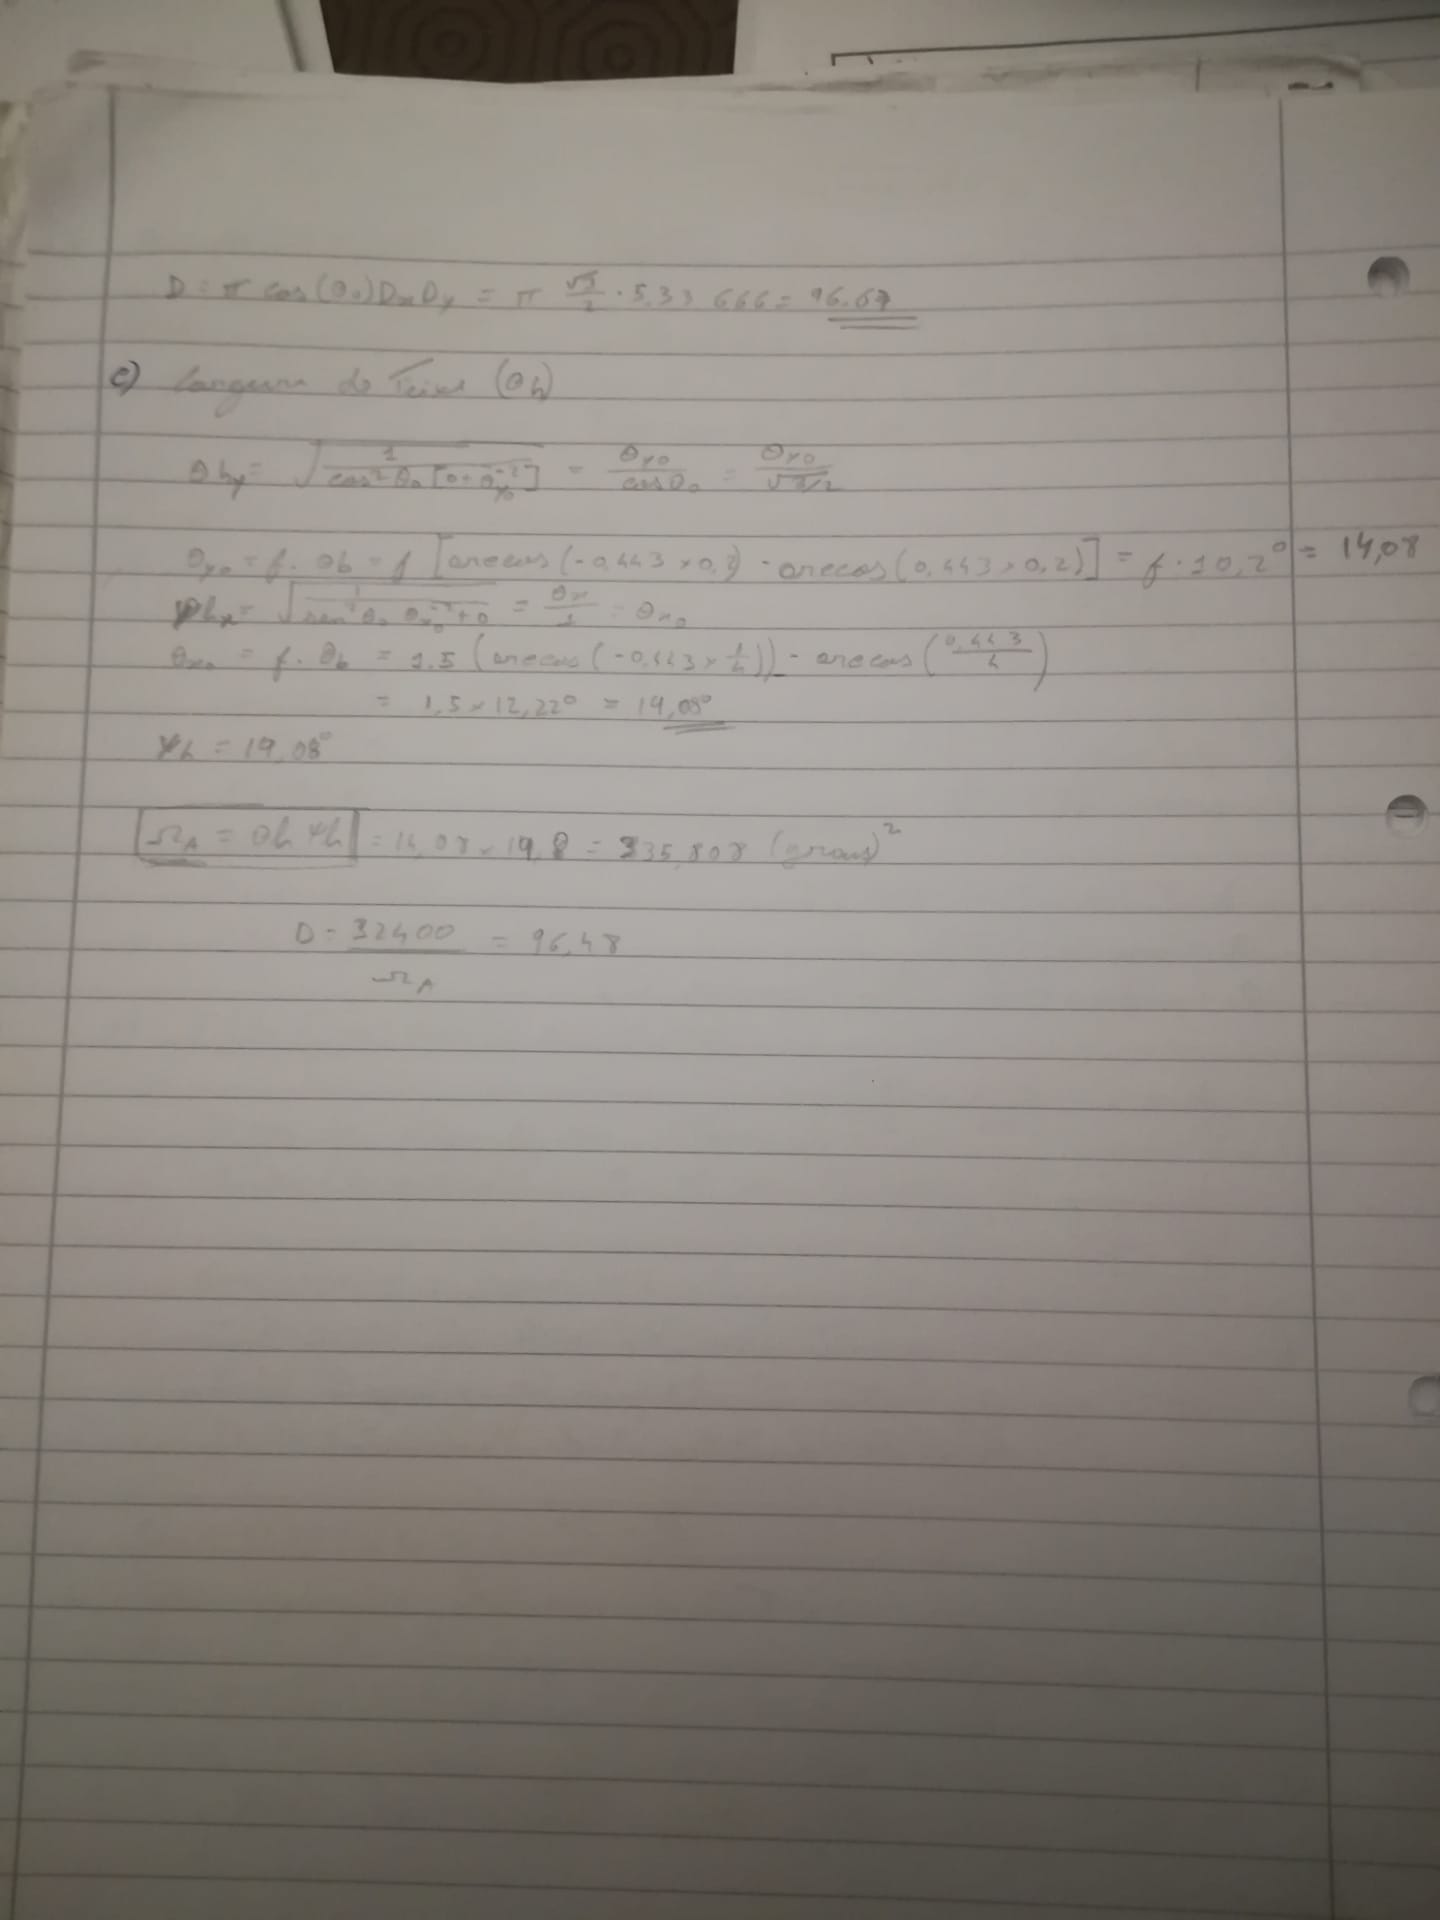 D = π cos(θ₀) Dx Dy = π √3/2 · 5.33 6.66 = 96.67
c) Largura do Feixe (θh)
θhy = √(1/(cos²θ₀ [0 + θy0⁻²])) = θy0/cosθ₀ = θy0/(√3/2)
θy0 = f · θb = f [arccos(-0,443 × 0,2) - arccos(0,443 × 0,2)] = f · 10,2° = 14,08
ψhx = √(1/(sen²θ₀ θx0⁻² + 0)) = θx/1 = θx0
θx0 = f · θb = 1.5 (arccos(-0,443 × 1/4)) - arccos(0,443/4)
= 1,5 × 12,22° = 19,08°
ψh = 19,08°
ΩA = θh ψh = 14,08 × 19,8 = 335,808 (graus)²
D = 32400/ΩA = 96,48